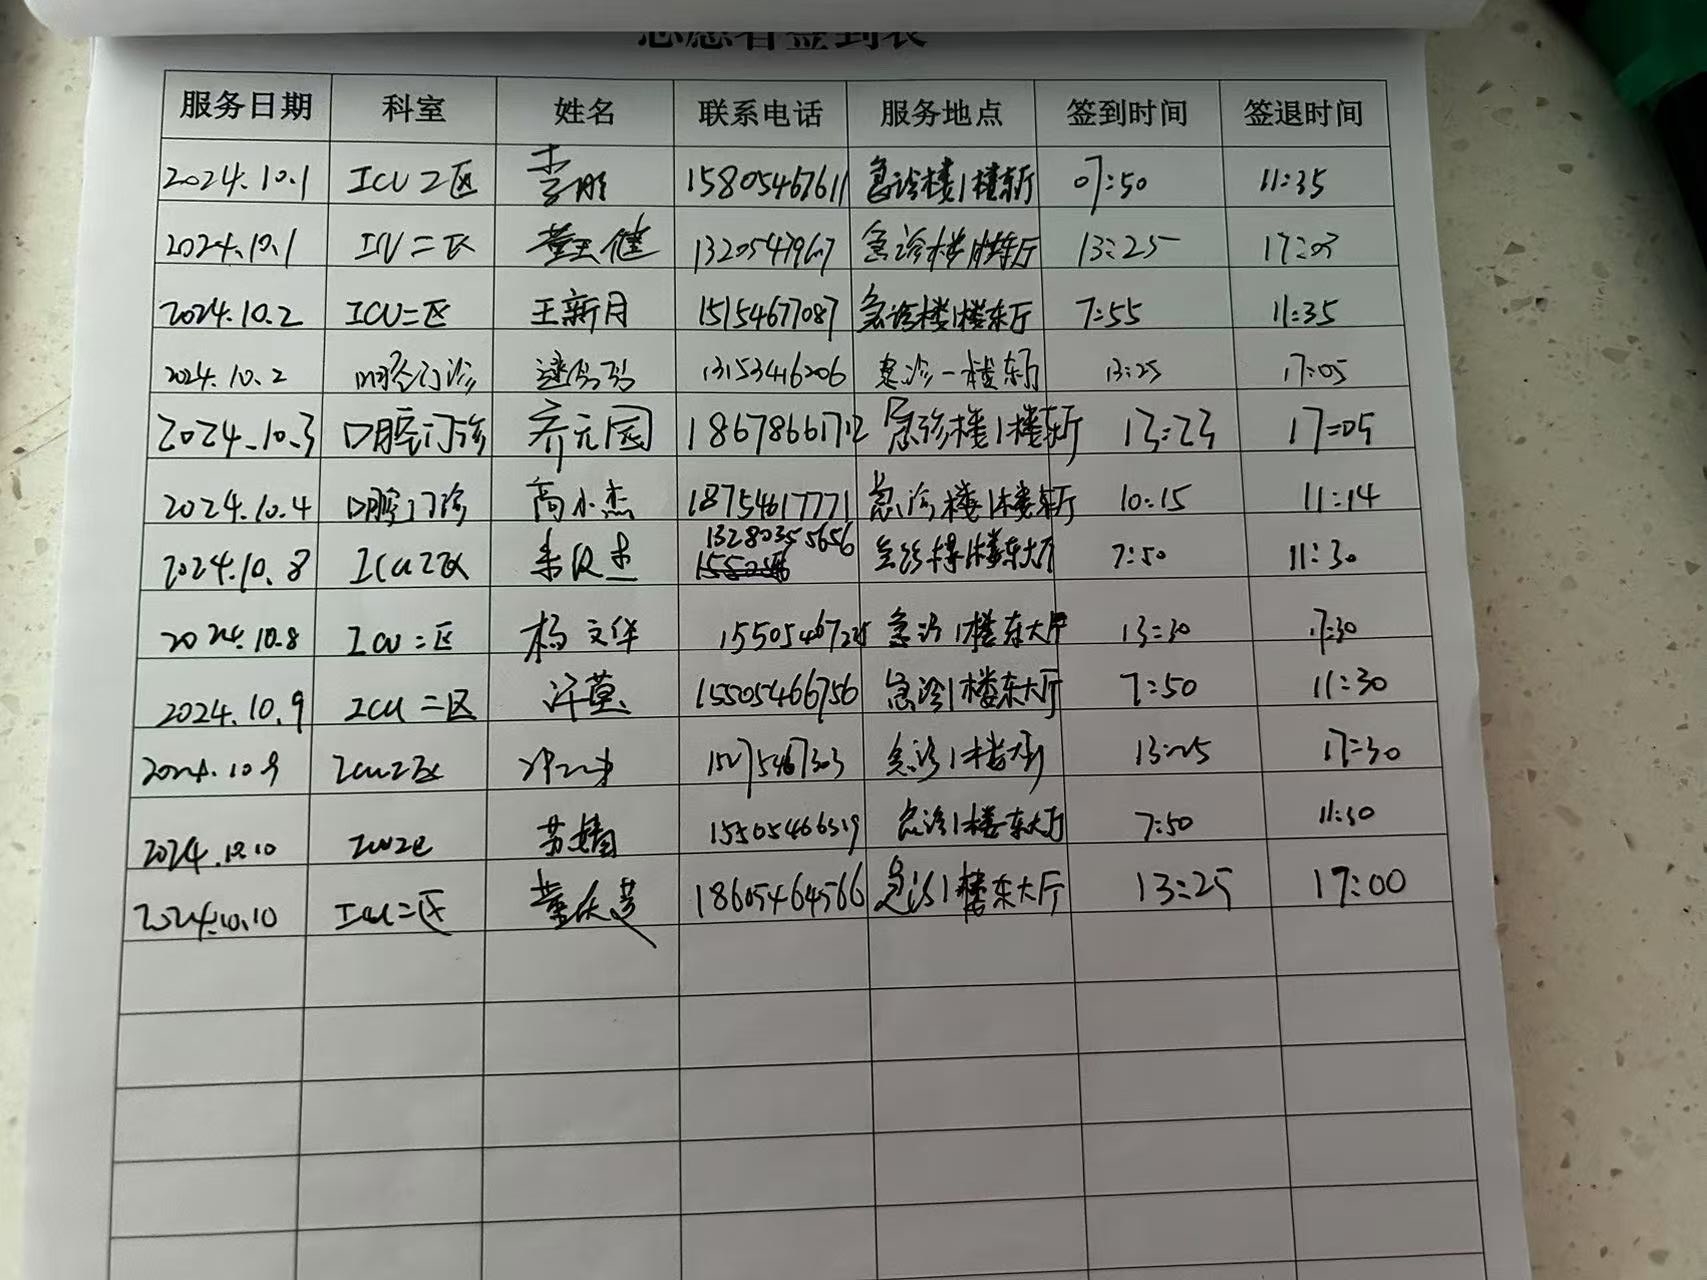 志愿者签到表
服务日期 科室 姓名 联系电话 服务地点 签到时间 签退时间
2024.10.1 ICU2区 李刚 15805467611 急诊楼1楼东厅 07:50 11:35
2024.10.1 ICU二区 健 急诊楼1楼东厅 13:25 17:03
2024.10.2 ICU二区 王新月 15154677087 急诊楼1楼东厅 7:55 11:35
2024.10.2 口腔门诊 13153416206 急诊一楼东厅 13:25 17:05
2024.10.3 口腔门诊 齐元园 急诊楼1楼东厅 13:23 17:05
2024.10.4 口腔门诊 高小杰 18754617771 急诊楼1楼东厅 10:15 11:14
2024.10.8 ICU2区 13280355656 急诊楼1楼东大厅 7:50 11:30
2024.10.8 ICU二区 杨文华 急诊1楼东大厅 13:30 17:30
2024.10.9 ICU二区 许蔓 15505466756 急诊1楼东大厅 7:50 11:30
2024.10.9 ICU2区 15275467303 急诊1楼 13:25 17:30
2024.10.10 ICU2区 苏婧 15505466519 急诊1楼东大厅 7:50 11:30
2024.10.10 ICU二区 董 18605464566 急诊1楼东大厅 13:25 17:00